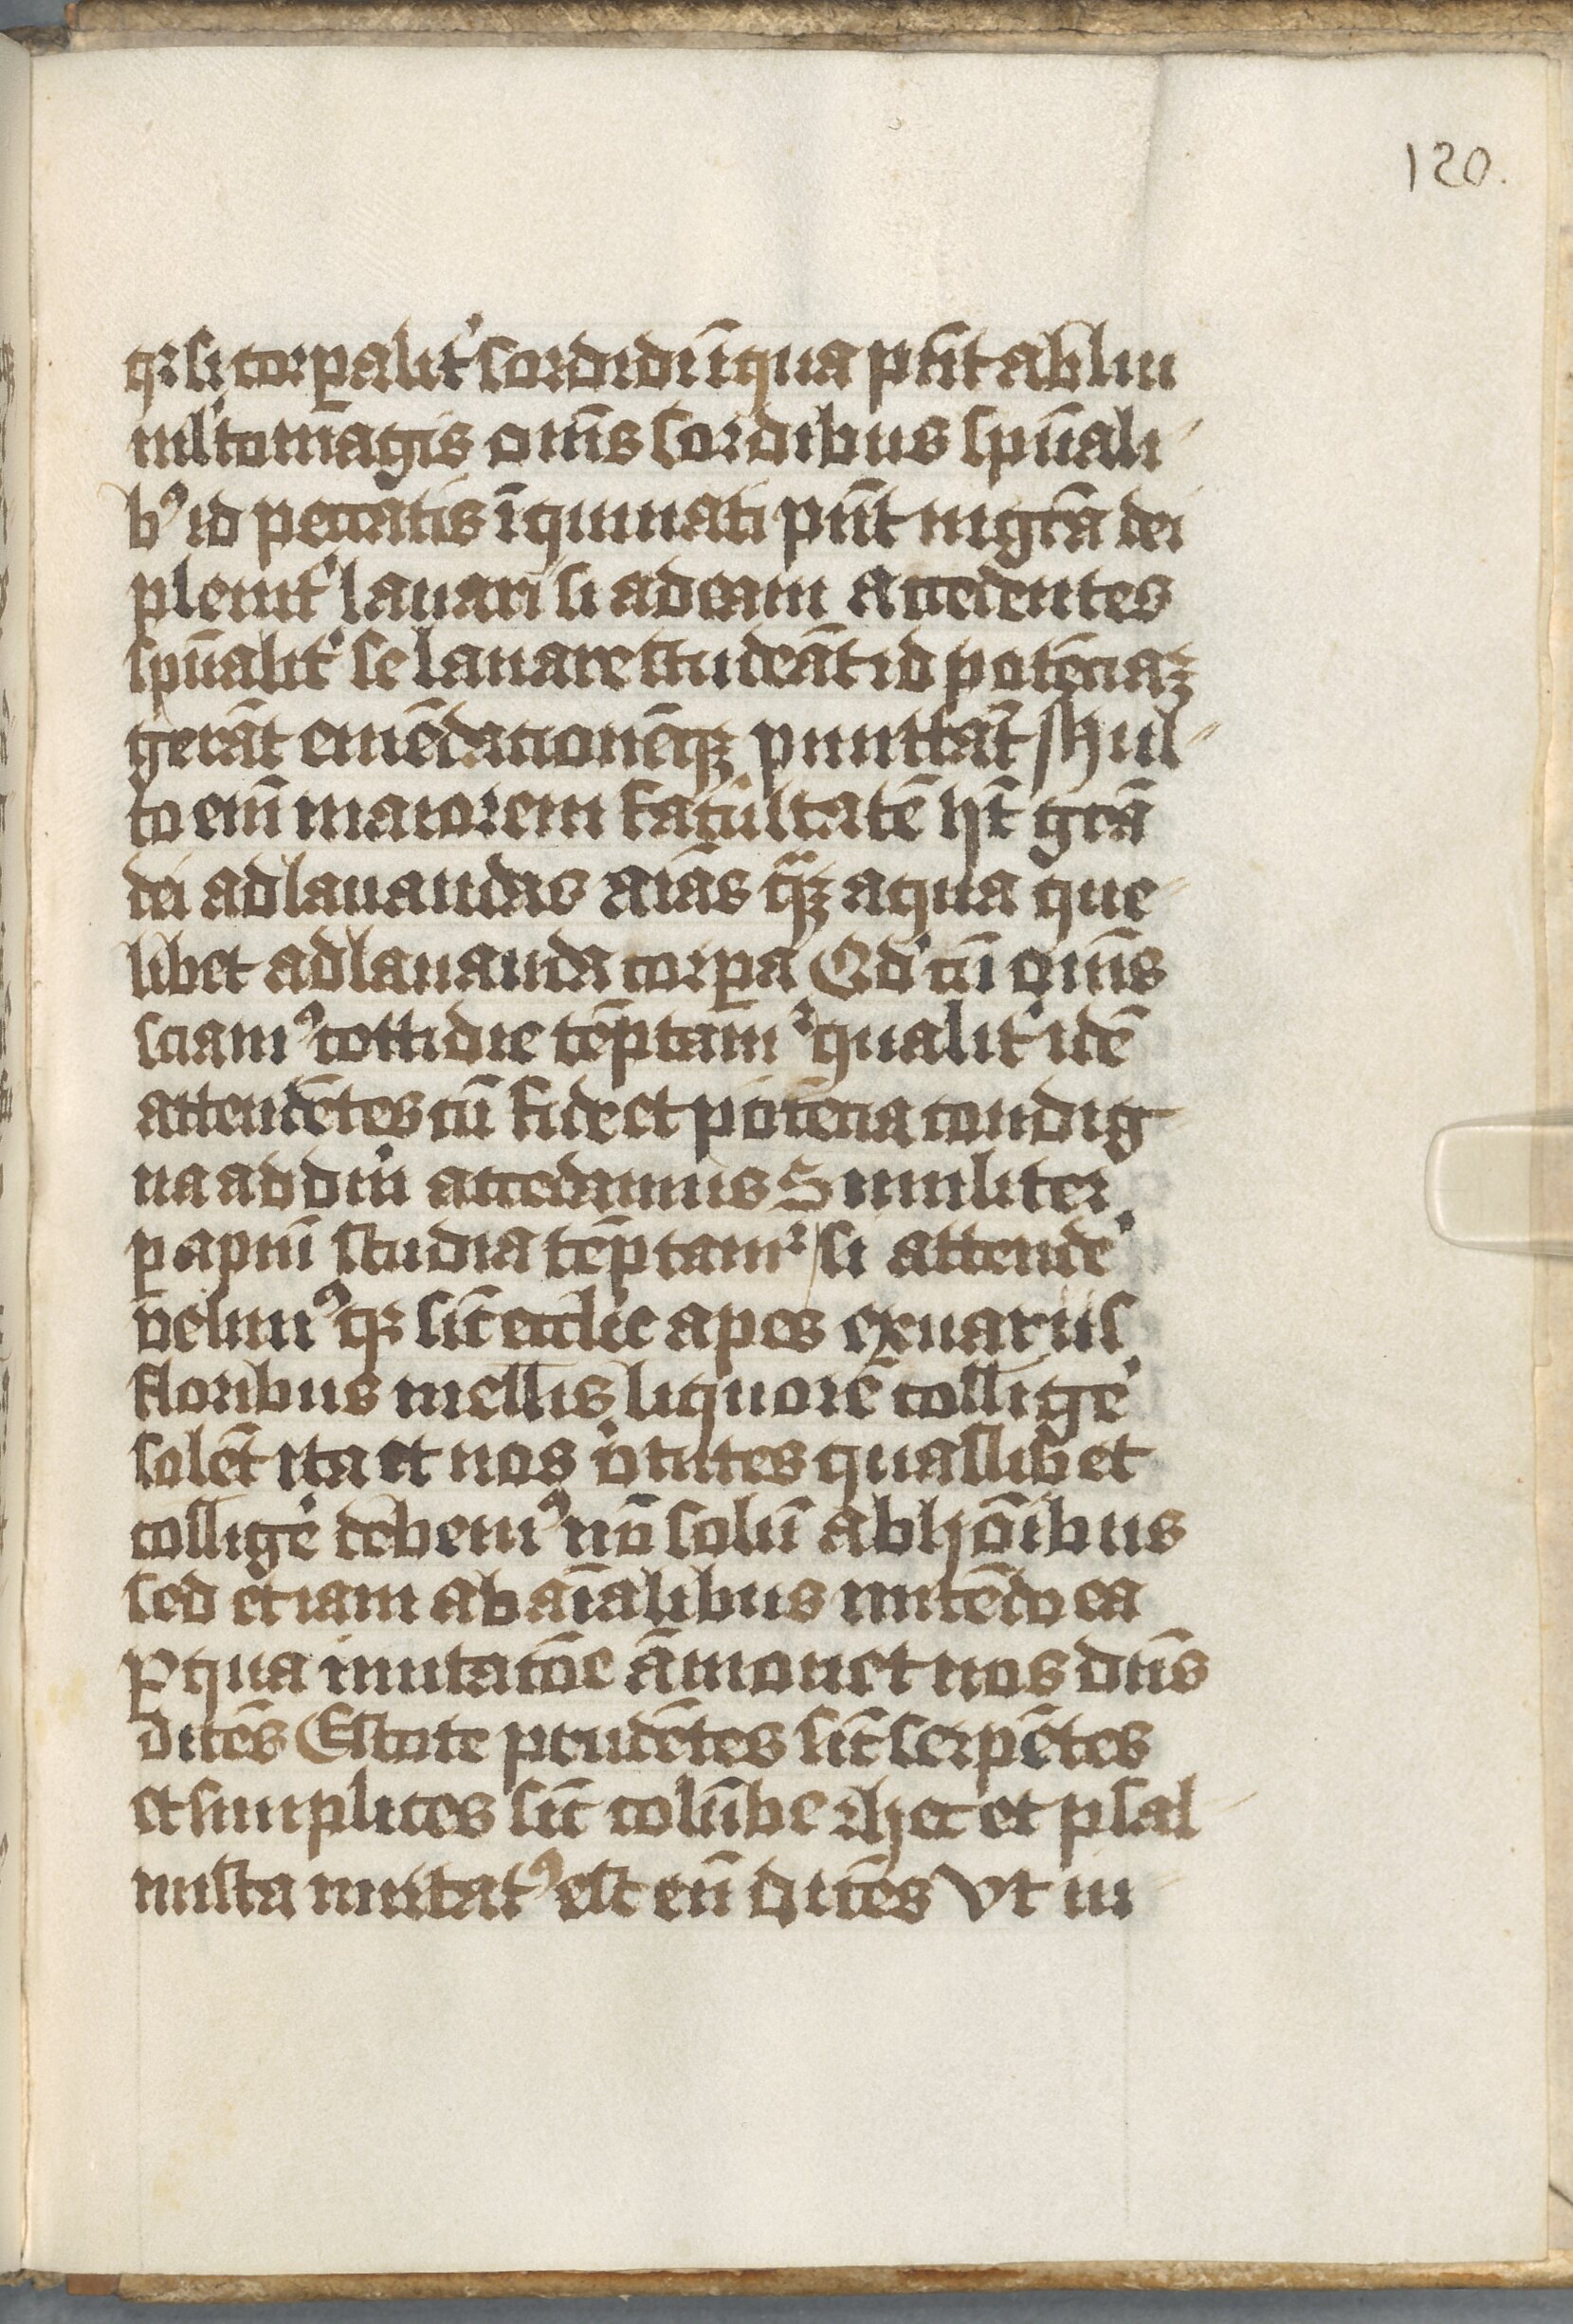 120.
qꝛ si corꝑalit᷑ sordidi ī qua pn̄t ablui
ml̄to magis om̄s sordibus spūali-
bꝰ id peccatis īquinati pn̄t in gr̄a dei
plenit᷑ lauari si ad eam accedentes
spūalit᷑ se lauare studeāt id pōtenciaꝫ
gerāt emēdacionēqꝫ
to em̄ maiorem facultatē ht̄ gr̄a
dei ad lauandas aīas qͣꝫ aqua que-
libet ad lauanda corꝑa Qd cū om̄s
sciamꝰ cottidie tēptamꝛ qualit᷑ idē
attendētes cū fide et pōtēcia condig
na ad dm̄ accedimus Similiter
ꝑ apum̄ studia tēptamꝛ / si attende᷑
velimꝰ qꝛ sic̄ eccl̄ie apes ex uariis
floribus mellis liquorē collige᷑
solēt ita et nos v᷑tutes quaslibet
collige᷑ debemꝰ nō solū ab hōibus
sed etiam ab aīalibus imitēdo ea
ꝑ qua imitacōe āmonet nos dn̄s
dicēs Estote prudētes sic̄ serpētes
et simplices sic̄ colūbe hec et psal-
mista imitatꝰ est eū dicēs vt iu-